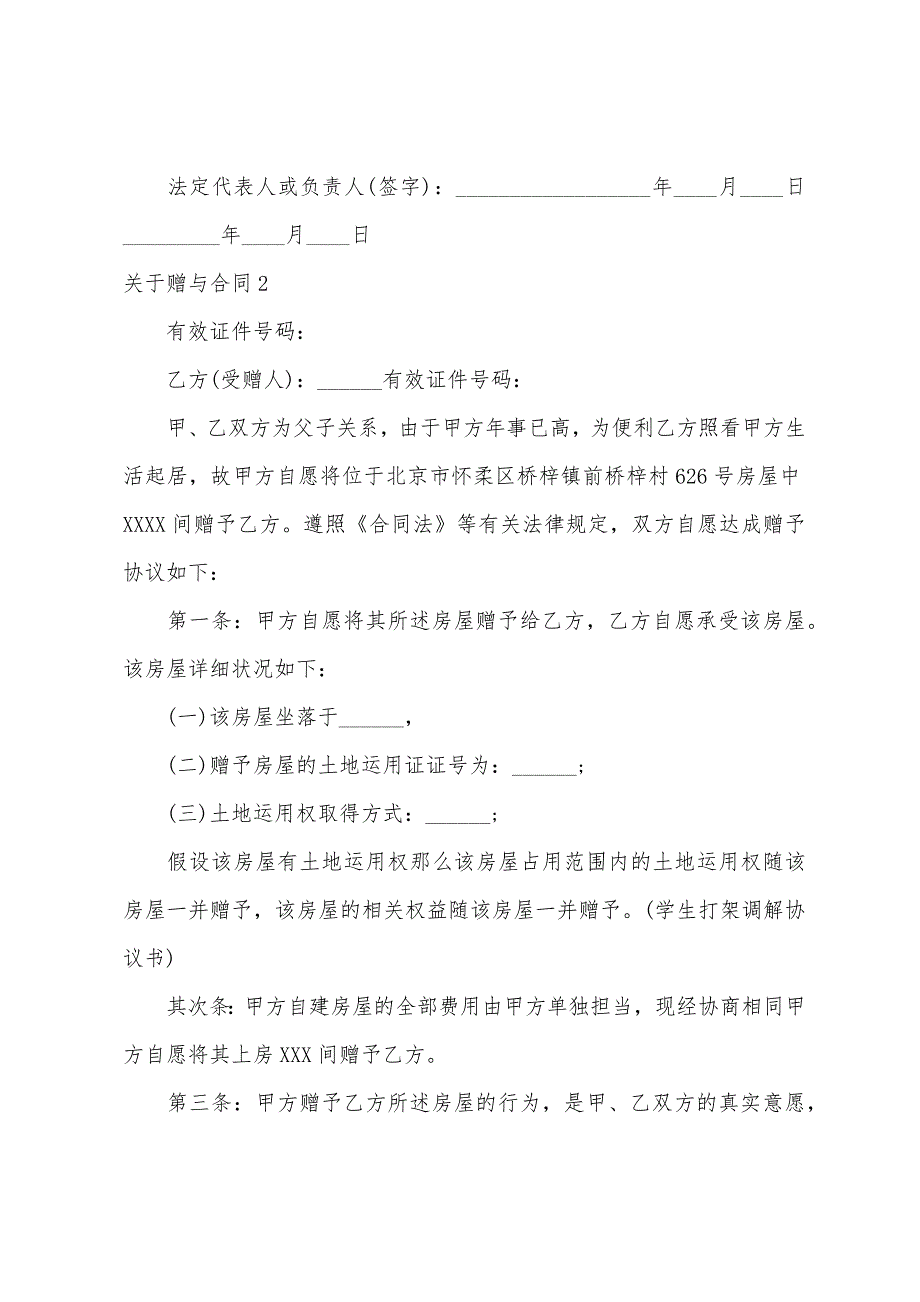 法定代表人或负责人(签字)：__________________年____月____日
_________年____月____日
关于赠与合同2
有效证件号码：
乙方(受赠人)：______有效证件号码：
甲、乙双方为父子关系，由于甲方年事已高，为便利乙方照看甲方生
活起居，故甲方自愿将位于北京市怀柔区桥梓镇前桥梓村 626 号房屋中
XXXX 间赠予乙方。遵照《合同法》等有关法律规定，双方自愿达成赠予
协议如下：
第一条：甲方自愿将其所述房屋赠予给乙方，乙方自愿承受该房屋。
该房屋详细状况如下：
(一)该房屋坐落于______，
(二)赠予房屋的土地运用证证号为：______;
(三)土地运用权取得方式：______;
假设该房屋有土地运用权那么该房屋占用范围内的土地运用权随该
房屋一并赠予，该房屋的相关权益随该房屋一并赠予。(学生打架调解协
议书)
其次条：甲方自建房屋的全部费用由甲方单独担当，现经协商相同甲
方自愿将其上房 XXX 间赠予乙方。
第三条：甲方赠予乙方所述房屋的行为，是甲、乙双方的真实意愿，